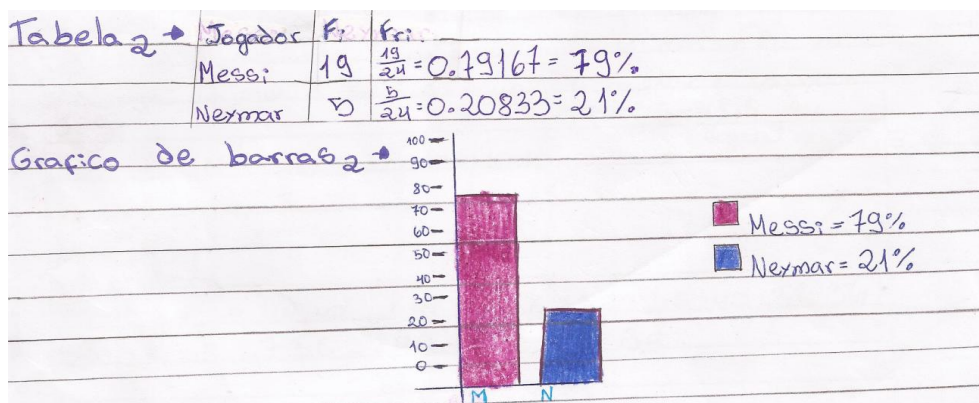 Tabela 2 → Jogador Fi Fri
Messi 19 19/24 = 0.79167 = 79%
Neymar 5 5/24 = 0.20833 = 21%
Grafico de barras 2 →
100
90
80
70
60
50
40
30
20
10
0
M N
Messi = 79%
Neymar = 21%